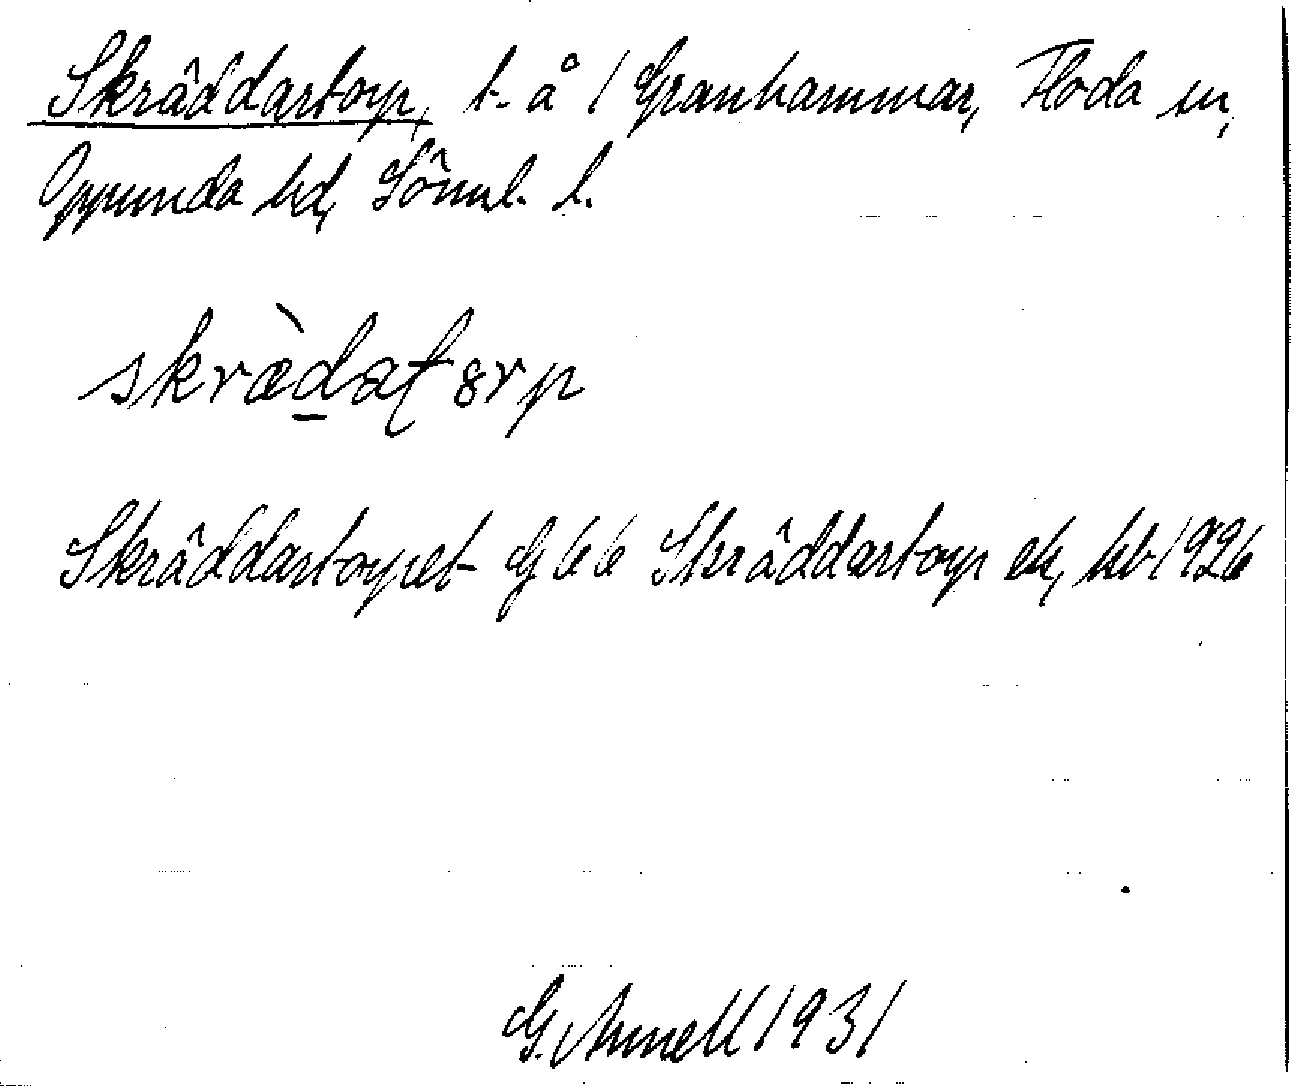 Skräddartorp, t. å 1 Granhammar, Floda sn,
Oppunda hd, Söml. l.
skrædaʈɔrp
Skräddartorpet G 66 Skräddartorp ek, kb 1926
G. Annell 1931